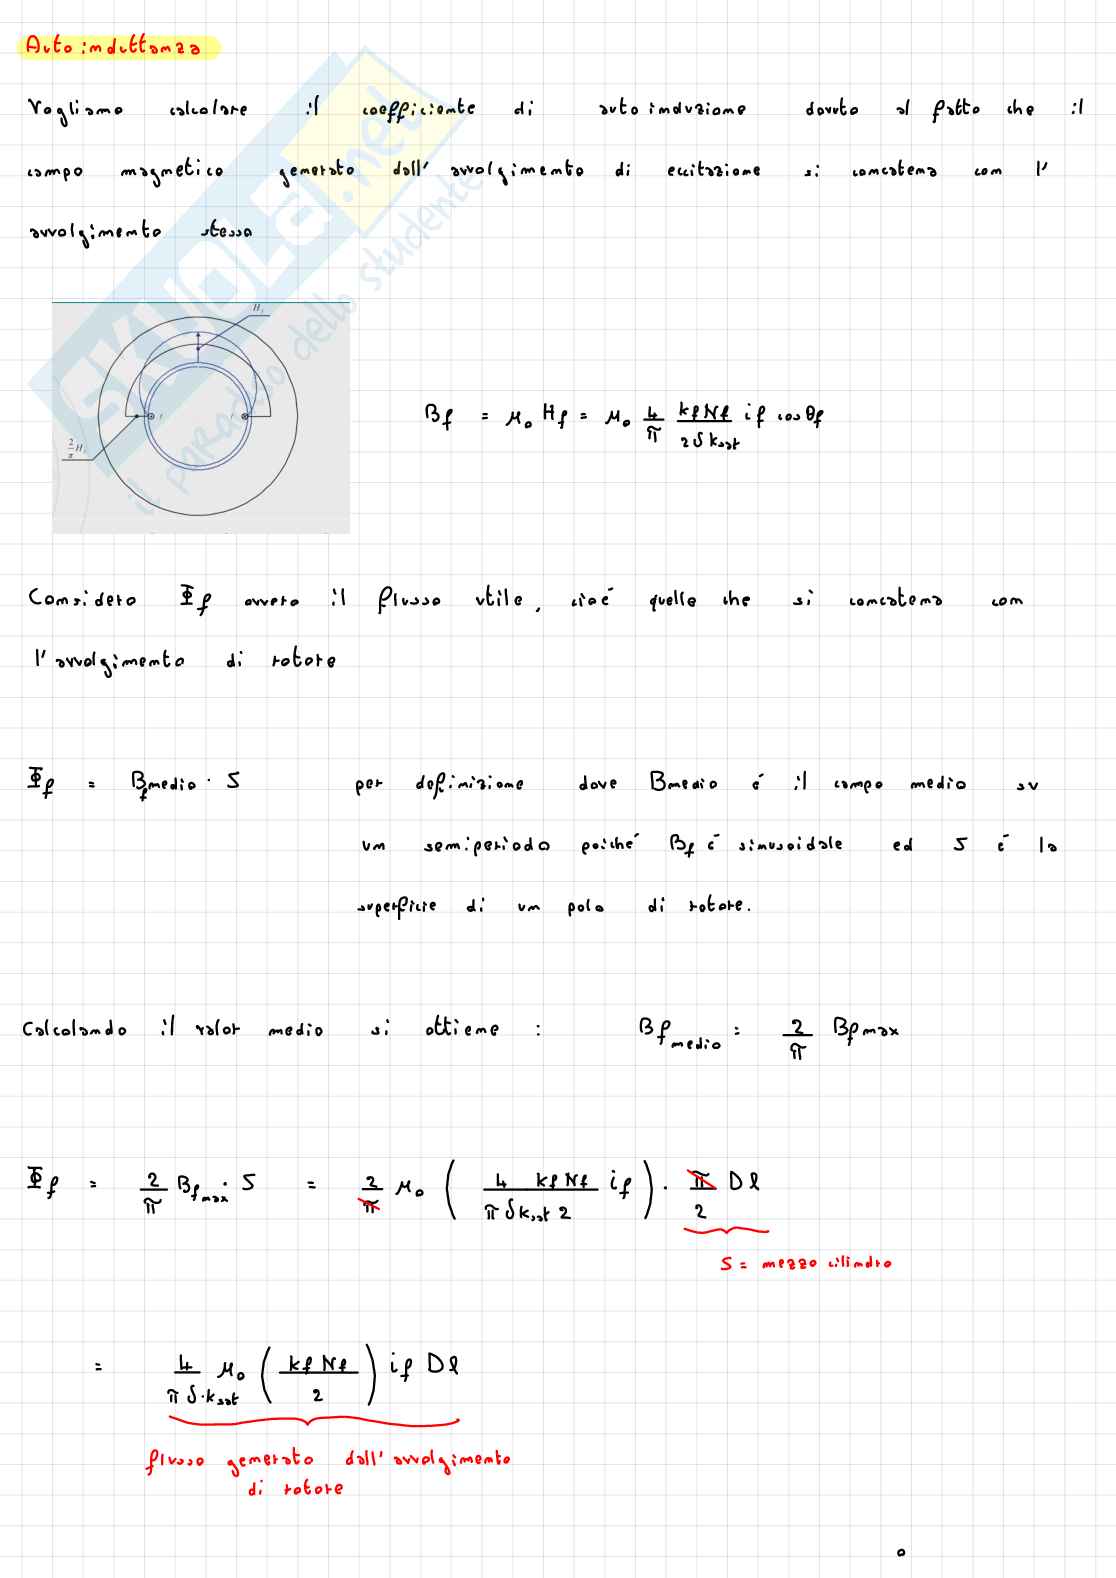 Autoinduttanza
Vogliamo calcolare il coefficiente di autoinduzione dovuto al fatto che il
campo magnetico generato dall' avvolgimento di eccitazione si concatena con l'
avvolgimento stesso
H_f
2/π H_f
B_f = μ₀ H_f = μ₀ 4/π k_f N_f / 2δ k_sat i_f cos θ_f
Considero Φ_f ovvero il flusso utile, cioè quello che si concatena con
l'avvolgimento di rotore
Φ_f = B_f medio · S per definizione dove B medio è il campo medio su
un semiperiodo poiché B_f è sinusoidale ed S è la
superficie di un polo di rotore.
Calcolando il valor medio si ottiene : B_f medio = 2/π B_f max
Φ_f = 2/π B_f max · S = 2/π μ₀ ( 4 k_f N_f / π δ k_sat 2 i_f ) · π/2 D l
S = mezzo cilindro
= 4/π δ · k_sat μ₀ ( k_f N_f / 2 ) i_f D l
flusso generato dall' avvolgimento
di rotore
SKUOLA.net
il paradiso dello studente